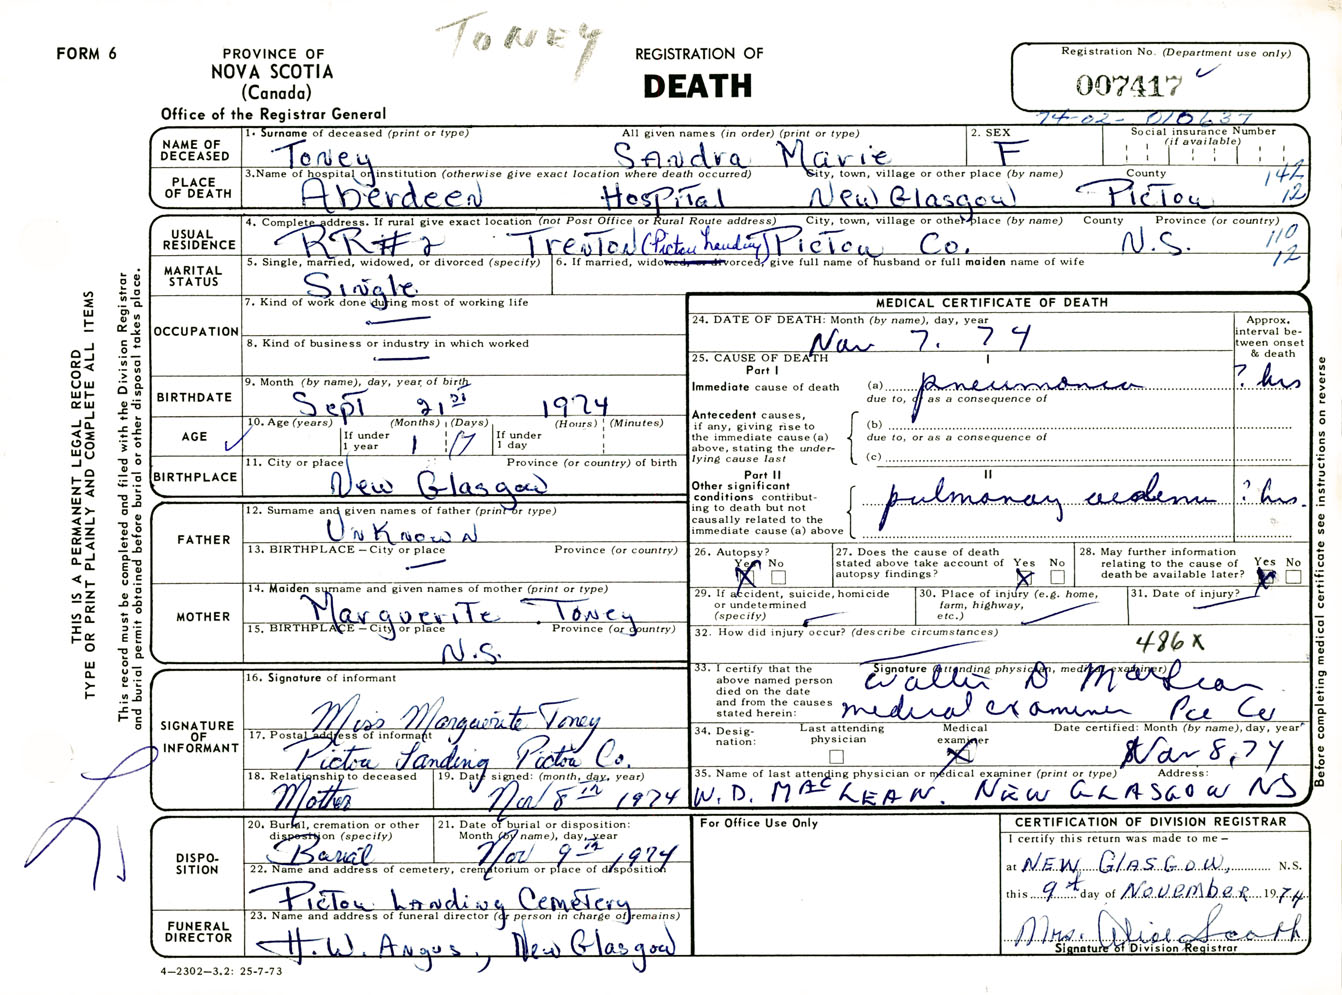 TONEY
FORM 6
PROVINCE OF
NOVA SCOTIA
(Canada)
Office of the Registrar General
REGISTRATION OF
DEATH
Registration No. (Department use only)
007417
74-02- 010637
NAME OF DECEASED
1. Surname of deceased (print or type) All given names (in order) (print or type)
Toney Sandra Marie
2. SEX
F
Social insurance Number
(if available)
PLACE OF DEATH
3. Name of hospital or institution (otherwise give exact location where death occurred) City, town, village or other place (by name) County
Aberdeen Hospital New Glasgow Pictou
142
12
USUAL RESIDENCE
4. Complete address. If rural give exact location (not Post Office or Rural Route address) City, town, village or other place (by name) County Province (or country)
RR#2 Trenton (Pictou Landing) Pictou Co. N.S.
110
12
MARITAL STATUS
5. Single, married, widowed, or divorced (specify)
Single
6. If married, widowed, or divorced, give full name of husband or full maiden name of wife
OCCUPATION
7. Kind of work done during most of working life
8. Kind of business or industry in which worked
BIRTHDATE
9. Month (by name), day, year of birth
Sept 21st 1974
AGE
10. Age (years) If under 1 year (Months) (Days) If under 1 day (Hours) (Minutes)
1 17
BIRTHPLACE
11. City or place Province (or country) of birth
New Glasgow
FATHER
12. Surname and given names of father (print or type)
Unknown
13. BIRTHPLACE – City or place Province (or country)
MOTHER
14. Maiden surname and given names of mother (print or type)
Marguerite Toney
15. BIRTHPLACE – City or place Province (or country)
N.S.
SIGNATURE OF INFORMANT
16. Signature of informant
Miss Marguerite Toney
17. Postal address of informant
Pictou Landing Pictou Co.
18. Relationship to deceased
Mother
19. Date signed: (month, day, year)
Nov 8th 1974
DISPOSITION
20. Burial, cremation or other disposition (specify)
Burial
21. Date of burial or disposition: Month (by name), day, year
Nov 9th 1974
22. Name and address of cemetery, crematorium or place of disposition
Pictou Landing Cemetery
FUNERAL DIRECTOR
23. Name and address of funeral director (or person in charge of remains)
H.W. Angus, New Glasgow
4–2302–3.2: 25-7-73
MEDICAL CERTIFICATE OF DEATH
24. DATE OF DEATH: Month (by name), day, year
Nov 7. 74
Approx. interval between onset & death
25. CAUSE OF DEATH
Part I
I
Immediate cause of death
(a) pneumonia ? hrs
due to, or as a consequence of
Antecedent causes, if any, giving rise to the immediate cause (a) above, stating the underlying cause last
(b)
due to, or as a consequence of
(c)
Part II
II
Other significant conditions contributing to death but not causally related to the immediate cause (a) above
pulmonary oedema ? hrs.
26. Autopsy?
Yes No
X
27. Does the cause of death stated above take account of autopsy findings?
Yes No
X
28. May further information relating to the cause of death be available later?
Yes No
X
29. If accident, suicide, homicide or undetermined (specify)
30. Place of injury (e.g. home, farm, highway, etc.)
31. Date of injury?
32. How did injury occur? (describe circumstances)
486X
33. I certify that the above named person died on the date and from the causes stated herein:
Signature (attending physician, medical examiner)
Walter D MacLean
medical examiner Pic Co
34. Designation:
Last attending physician
Medical examiner
X
Date certified: Month (by name), day, year
Nov 8, 74
35. Name of last attending physician or medical examiner (print or type) Address:
W. D. MacLEAN. NEW GLASGOW NS
For Office Use Only
CERTIFICATION OF DIVISION REGISTRAR
I certify this return was made to me –
at NEW GLASGOW, N.S.
this 9th day of November 1974
Mrs. Alice Scott
Signature of Division Registrar
THIS IS A PERMANENT LEGAL RECORD
TYPE OR PRINT PLAINLY AND COMPLETE ALL ITEMS
This record must be completed and filed with the Division Registrar
and burial permit obtained before burial or other disposal takes place.
Before completing medical certificate see instructions on reverse